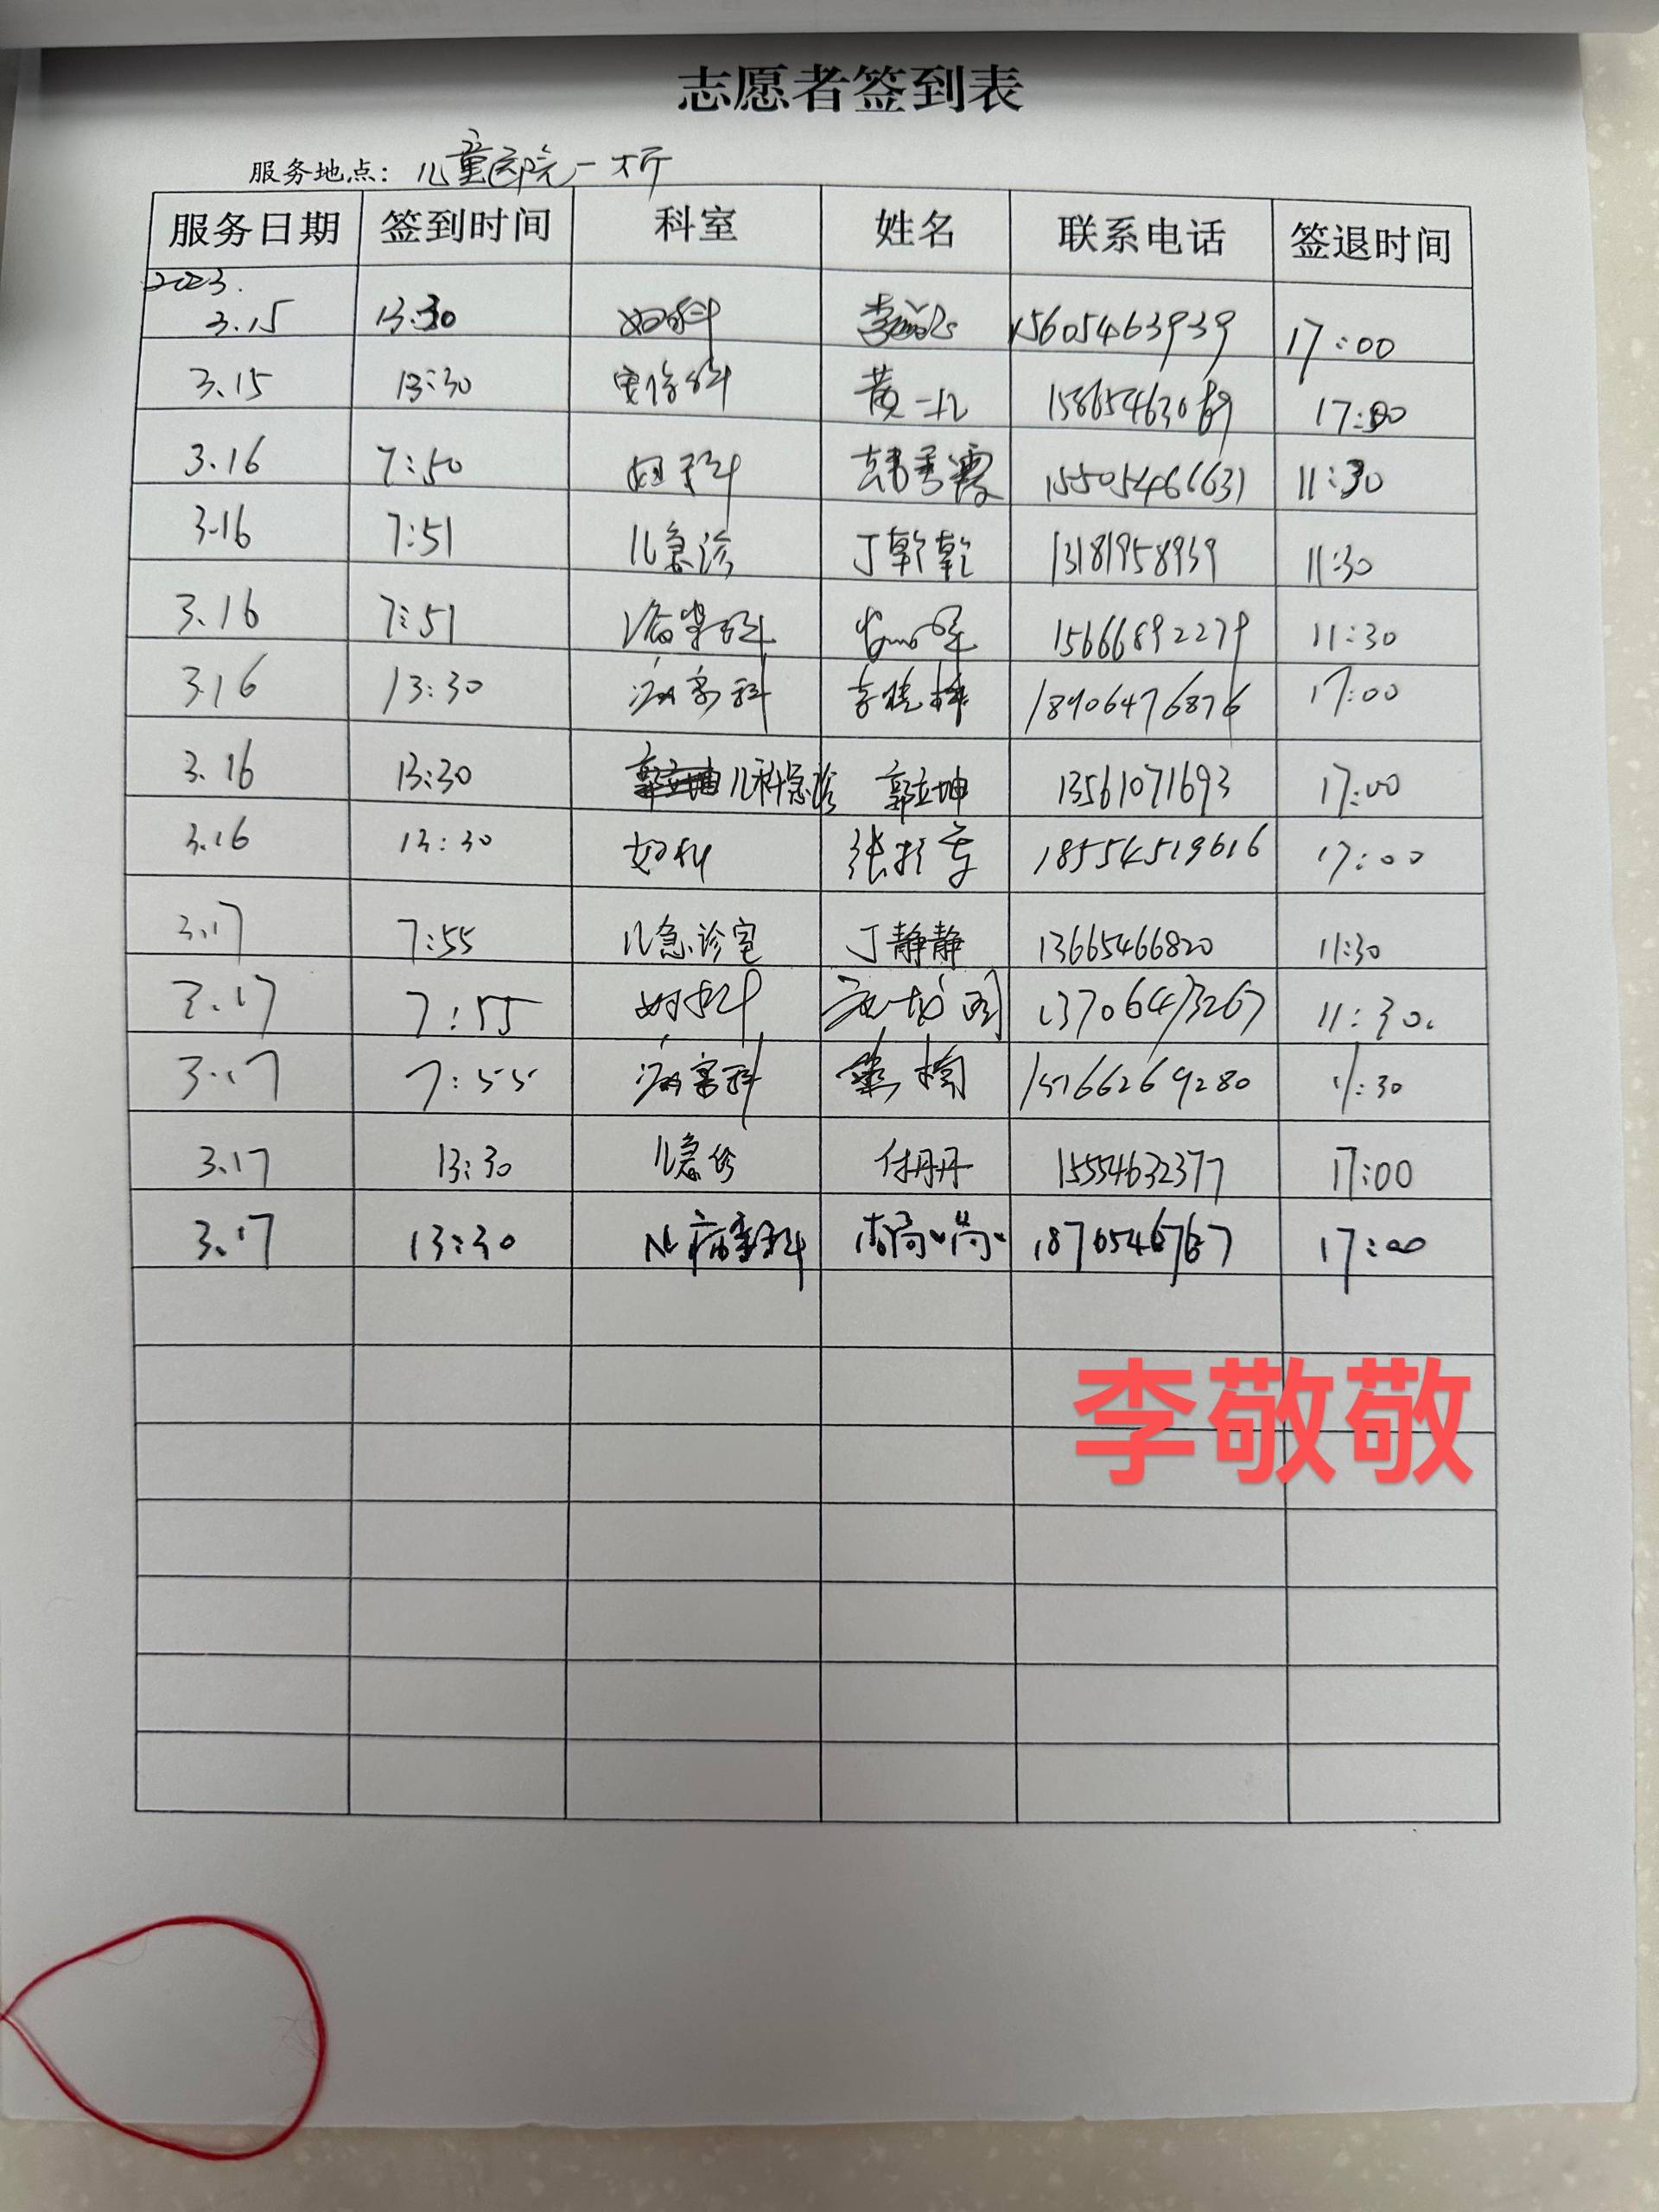 志愿者签到表
服务地点：儿童医院一大厅
服务日期 签到时间 科室 姓名 联系电话 签退时间
2023.
3.15 13:30 妇科 15605463939 17:00
3.15 13:30 黄一 17:00
3.16 7:50 妇产科 韩秀霞 15505466631 11:30
3.16 7:51 儿急诊 丁乾乾 13181958939 11:30
3.16 7:51 病案科 15666892279 11:30
3.16 13:30 病案科 李晓梅 18906476876 17:00
3.16 13:30 儿科急诊 郭立坤 13561071693 17:00
3.16 13:30 妇科 张 18554519616 17:00
3.17 7:55 儿急诊室 丁静静 13665466820 11:30
3.17 7:55 妇科 13706473267 11:30.
3.17 7:55 病案科 15766269280 11:30
3.17 13:30 儿急诊 付丹丹 15554632377 17:00
3.17 13:30 儿病案科 17:00
李敬敬